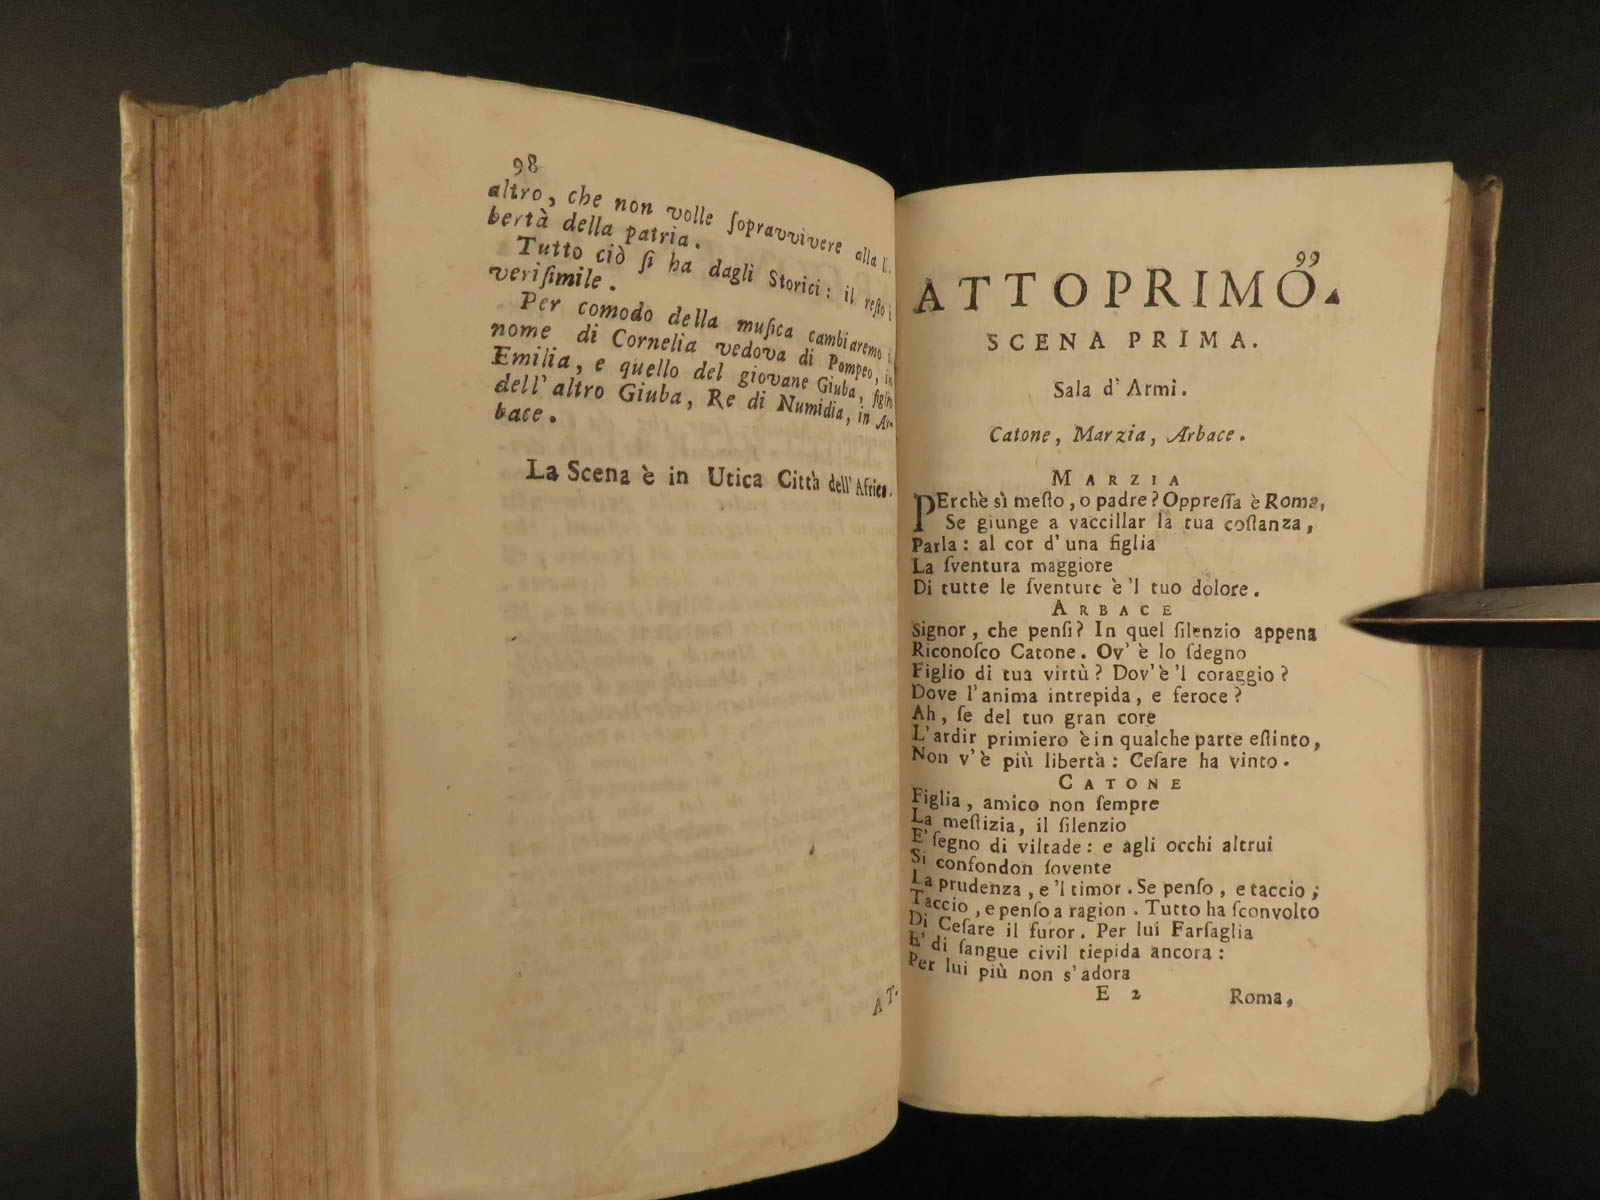 98
altro, che non volle ſopravvivere alla li-
bertà della patria.
Tutto ciò ſi ha dagli Storici: il reſto è
veriſimile.
Per comodo della muſica cambiaremo il
nome di Cornelia vedova di Pompeo, in
Emilia, e quello del giovane Giuba, figlio
dell' altro Giuba, Re di Numidia, in Ar-
bace.
La Scena è in Utica Città dell' Africa.
AT-
99
ATTO PRIMO.
SCENA PRIMA.
Sala d' Armi.
Catone, Marzia, Arbace.
MARZIA
PErchè sì meſto, o padre? Oppreſſa è Roma,
Se giunge a vaccillar la tua coſtanza,
Parla: al cor d' una figlia
La ſventura maggiore
Di tutte le ſventure è 'l tuo dolore.
ARBACE
Signor, che penſi? In quel ſilenzio appena
Riconoſco Catone. Ov' è lo ſdegno
Figlio di tua virtù? Dov'è 'l coraggio?
Dove l'anima intrepida, e feroce?
Ah, ſe del tuo gran core
L'ardir primiero è in qualche parte eſtinto,
Non v'è più libertà: Ceſare ha vinto.
CATONE
Figlia, amico non ſempre
La meſtizia, il ſilenzio
E' ſegno di viltade: e agli occhi altrui
Si confondon ſovente
La prudenza, e 'l timor. Se penſo, e taccio;
Taccio, e penſo a ragion. Tutto ha ſconvolto
Di Ceſare il furor. Per lui Farſaglia
E' di ſangue civil tiepida ancora:
Per lui più non s'adora
E 2 Roma,